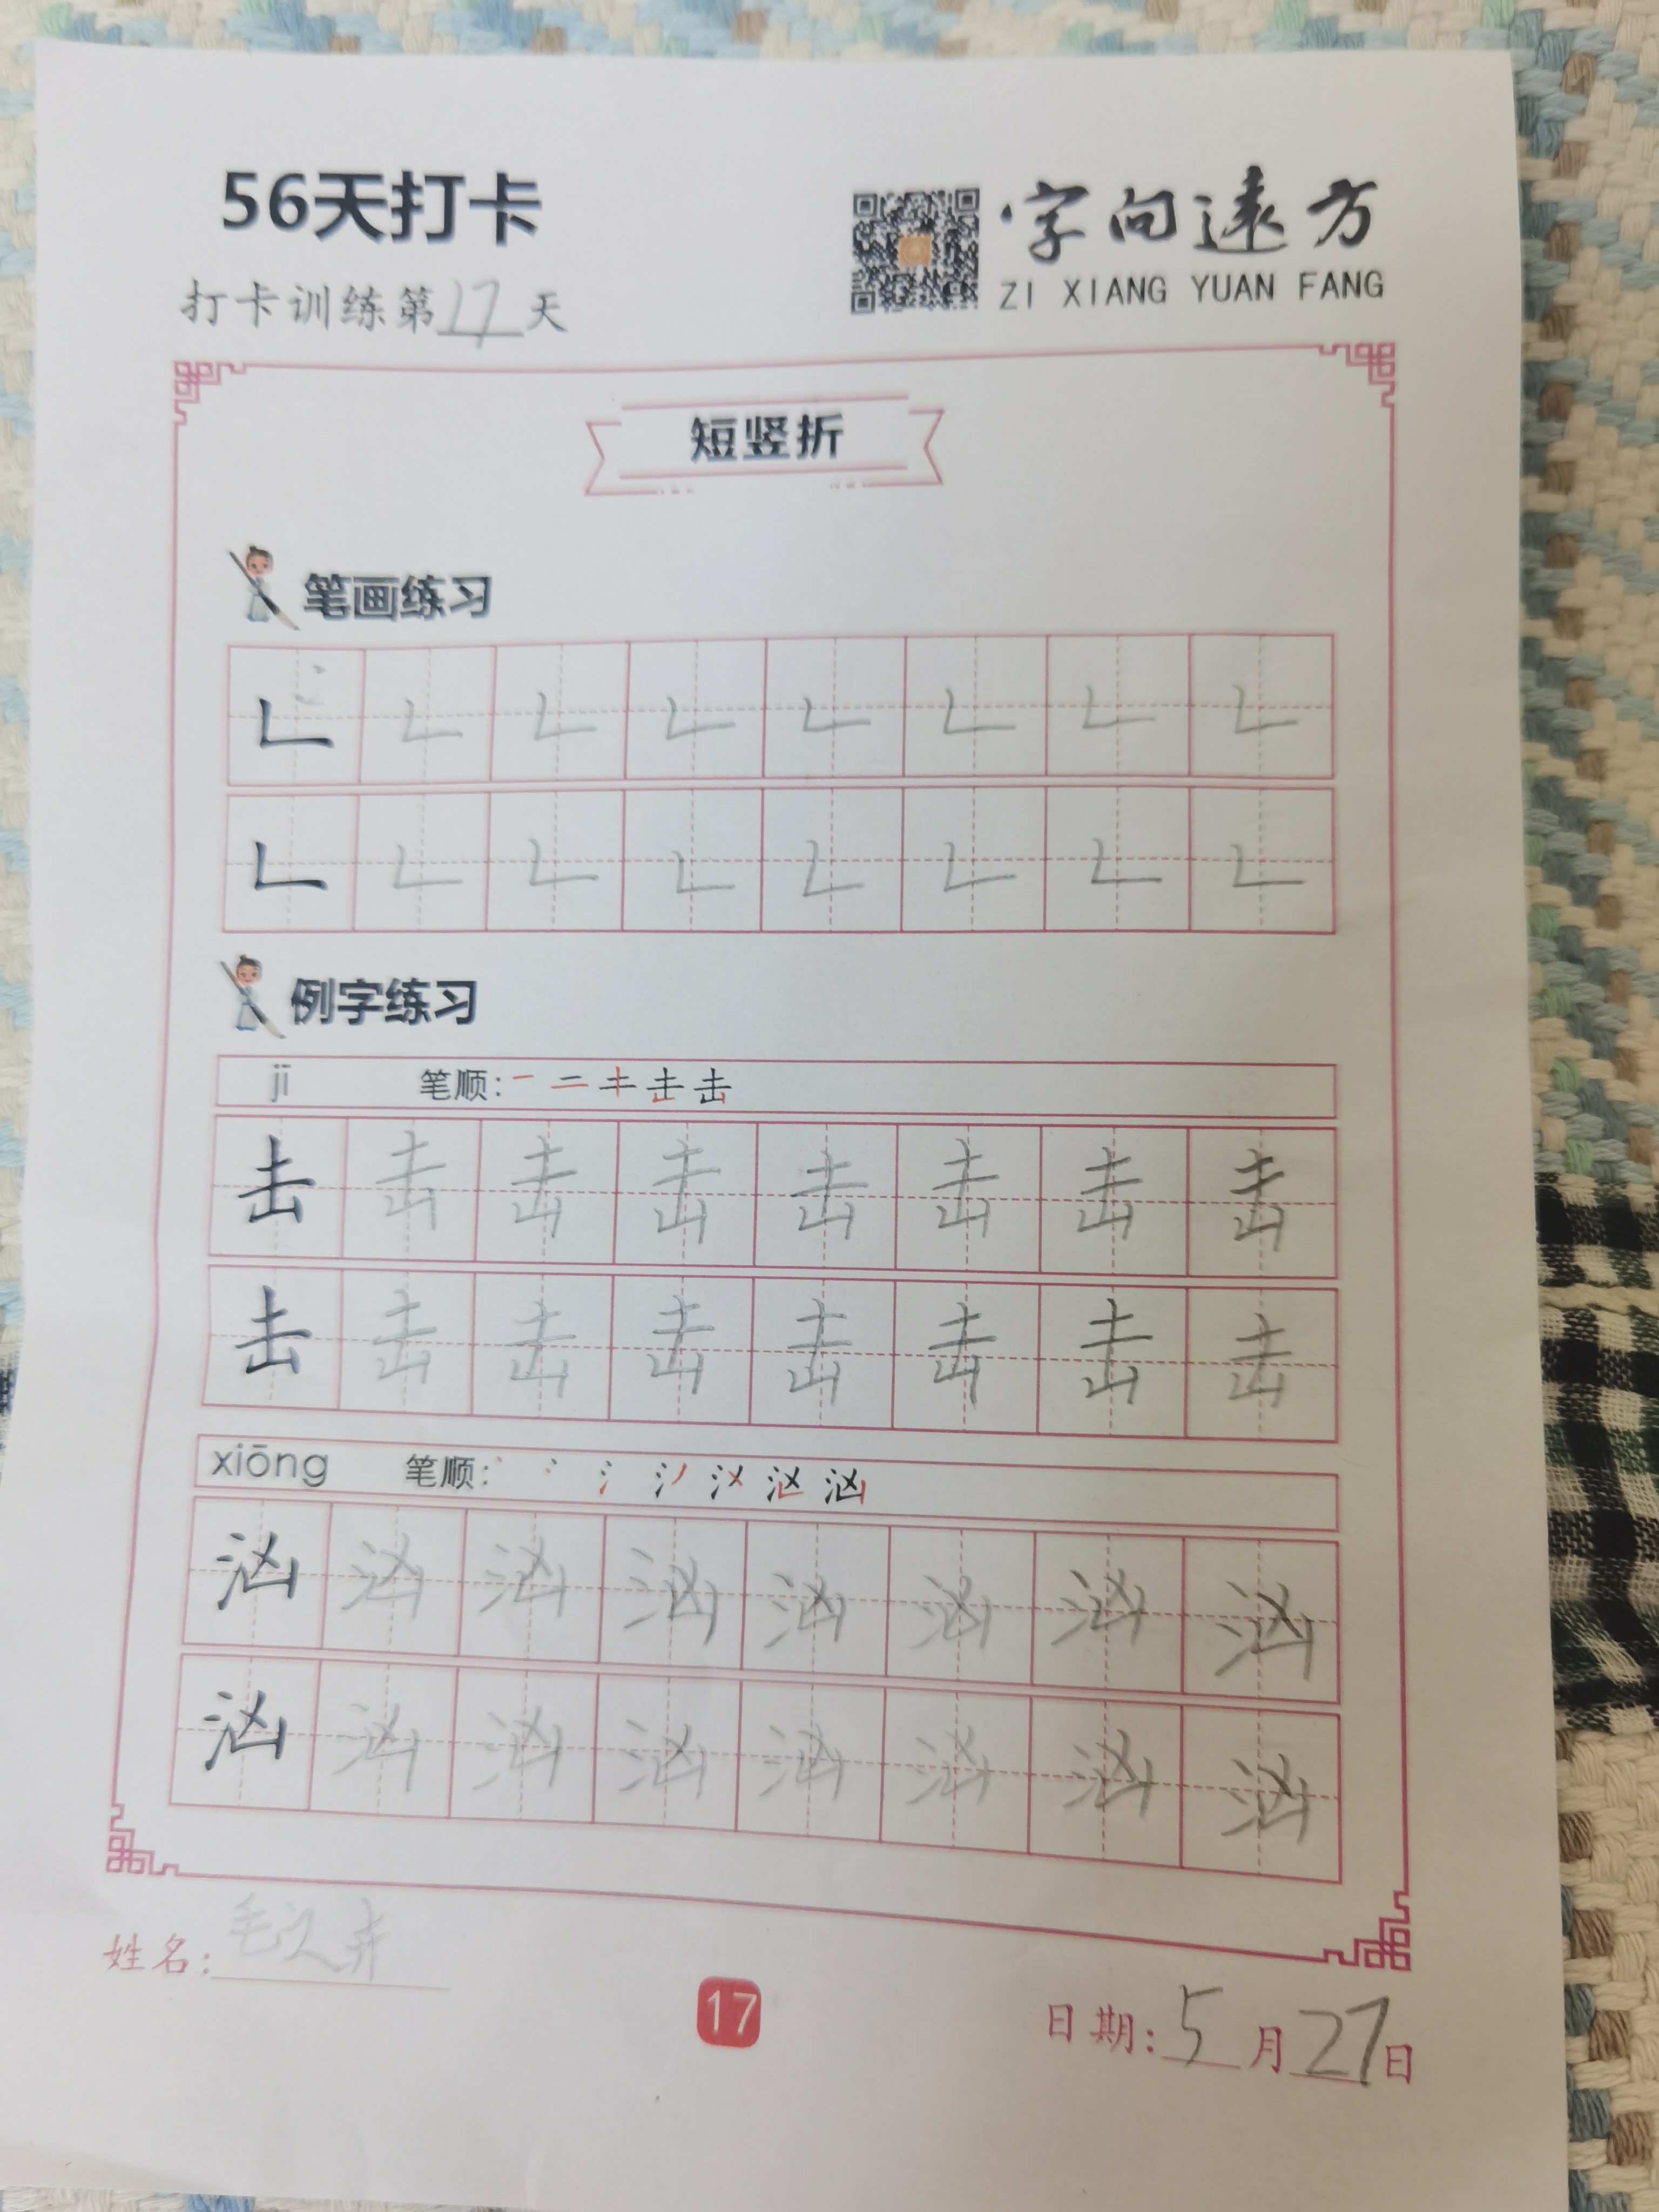 56天打卡
字向遠方
ZI XIANG YUAN FANG
打卡训练第17天
短竖折
笔画练习
𠃊 𠃊 𠃊 𠃊 𠃊 𠃊 𠃊 𠃊
𠃊 𠃊 𠃊 𠃊 𠃊 𠃊 𠃊 𠃊
例字练习
jī 笔顺:
击 击 击 击 击 击 击 击
击 击 击 击 击 击 击 击
xiōng 笔顺:
汹 汹 汹 汹 汹 汹 汹 汹
汹 汹 汹 汹 汹 汹 汹 汹
姓名:
17
日期:5月27日